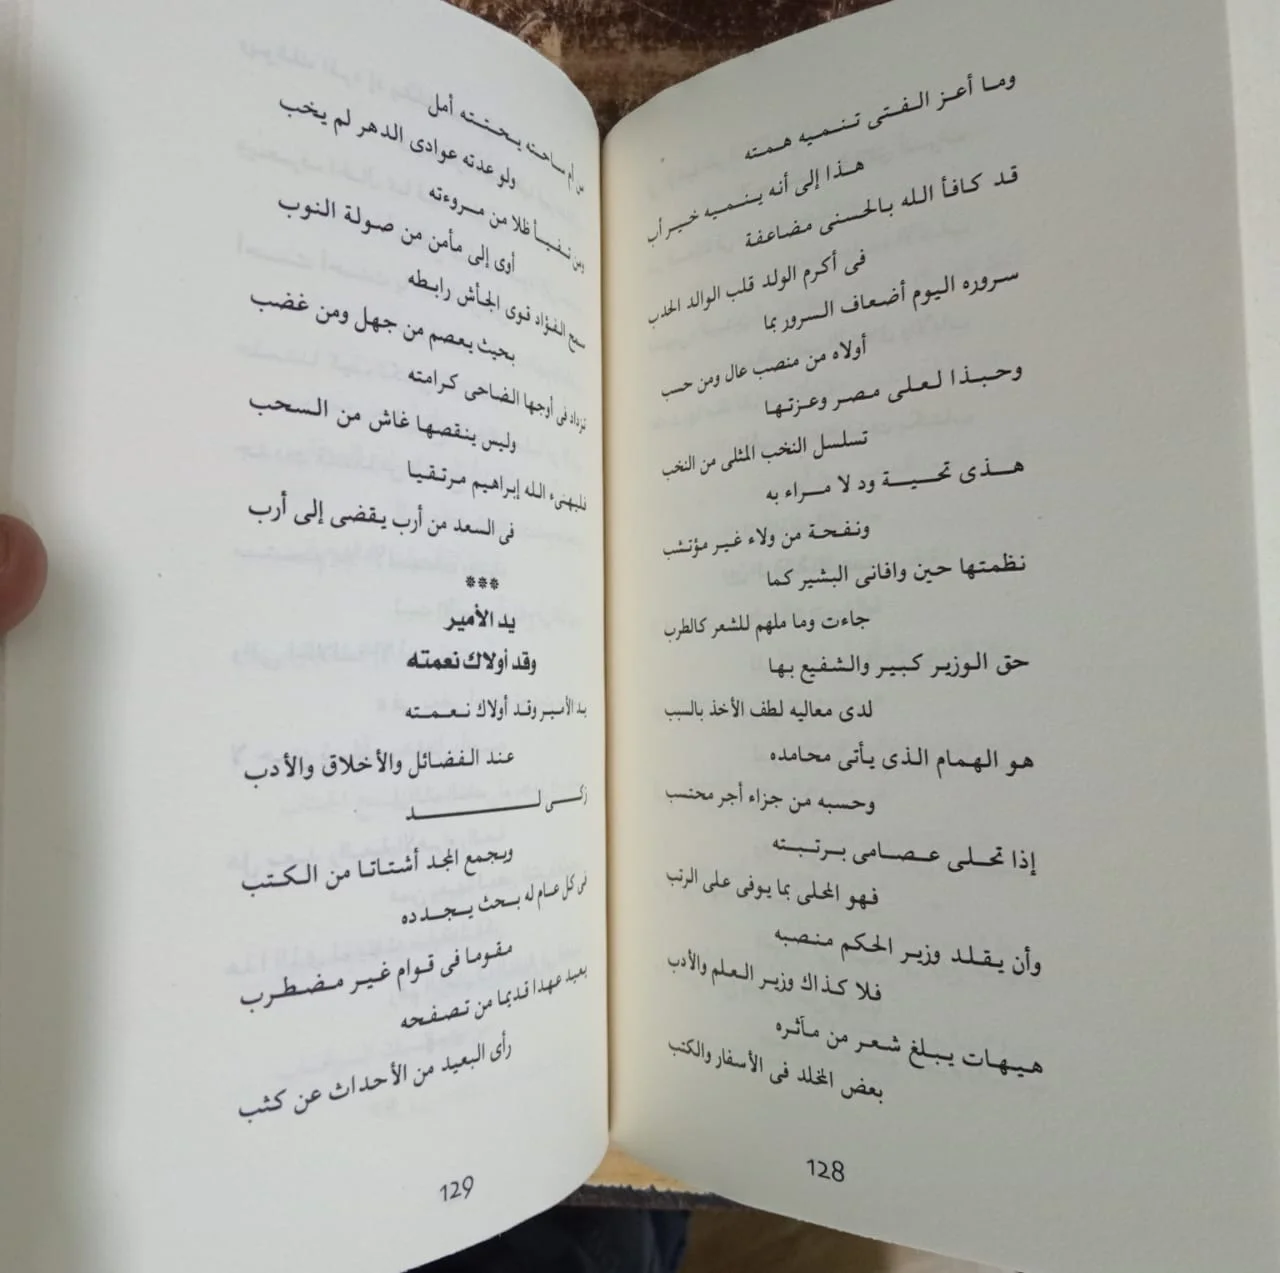 وما أعز الفتى تنميه همته
هذا إلى أنه ينميه خير أب
قد كافأ الله بالحسنى مضاعفة
فى أكرم الولد قلب الوالد الحدب
سروره اليوم أضعاف السرور بما
أولاه من منصب عال ومن حسب
وحبذا لعلى مصر وعزتها
تسلسل النخب المثلى من النخب
هذى تحية ود لا مراء به
ونفحة من ولاء غير مؤتشب
نظمتها حين وافانى البشير كما
جاءت وما ملهم للشعر كالطرب
حق الوزير كبير والشفيع بها
لدى معاليه لطف الأخذ بالسبب
هو الهمام الذى يأتى محامده
وحسبه من جزاء أجر محتسب
إذا تحلى عصامى برتبته
فهو المحلى بما يوفى على الرتب
وأن يقلد وزير الحكم منصبه
فلا كذاك وزير العلم والأدب
هيهات يبلغ شعر من مآثره
بعض المخلد فى الأسفار والكتب
128
من أم ساحته يحتته أمل
ولو عدته عوادى الدهر لم يخب
ومن تفيأ ظلا من مروءته
أوى إلى مأمن من صولة النوب
سمح الفؤاد قوى الجأش رابطه
بحيث يعصم من جهل ومن غضب
تزداد فى أوجها الضاحى كرامته
وليس ينقصها غاش من السحب
فليهنىء الله إبراهيم مرتقيا
فى السعد من أرب يقضى إلى أرب
***
يد الأمير
وقد أولاك نعمته
يد الأمير وقد أولاك نعمته
عند الفضائل والأخلاق والأدب
زكى لد
ويجمع المجد أشتاتا من الكتب
فى كل عام له بحث يجدده
مقوما فى قوام غير مضطرب
بعيد عهدا قديما من تصفحه
رأى البعيد من الأحداث عن كثب
129